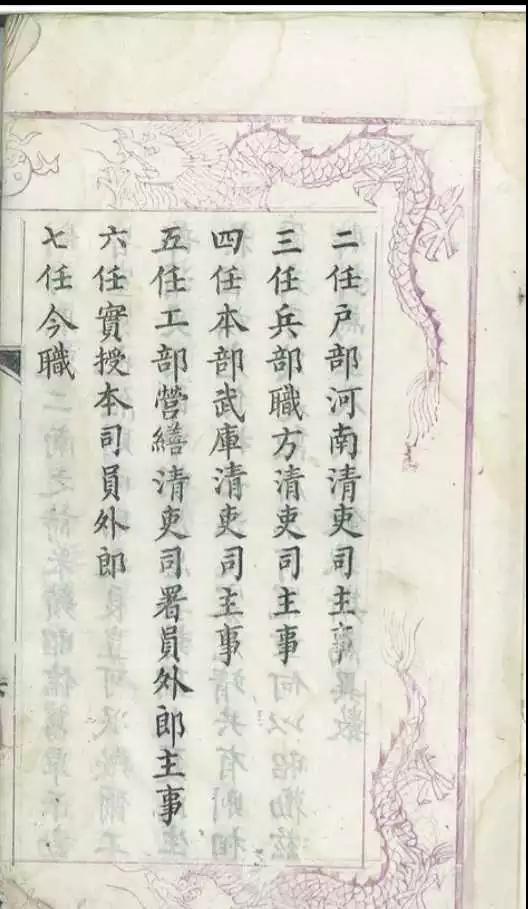 二任户部河南清吏司主事
三任兵部職方清吏司主事
四任本部武庫清吏司主事
五任工部營繕清吏司署員外郎主事
六任實授本司員外郎
七任今職